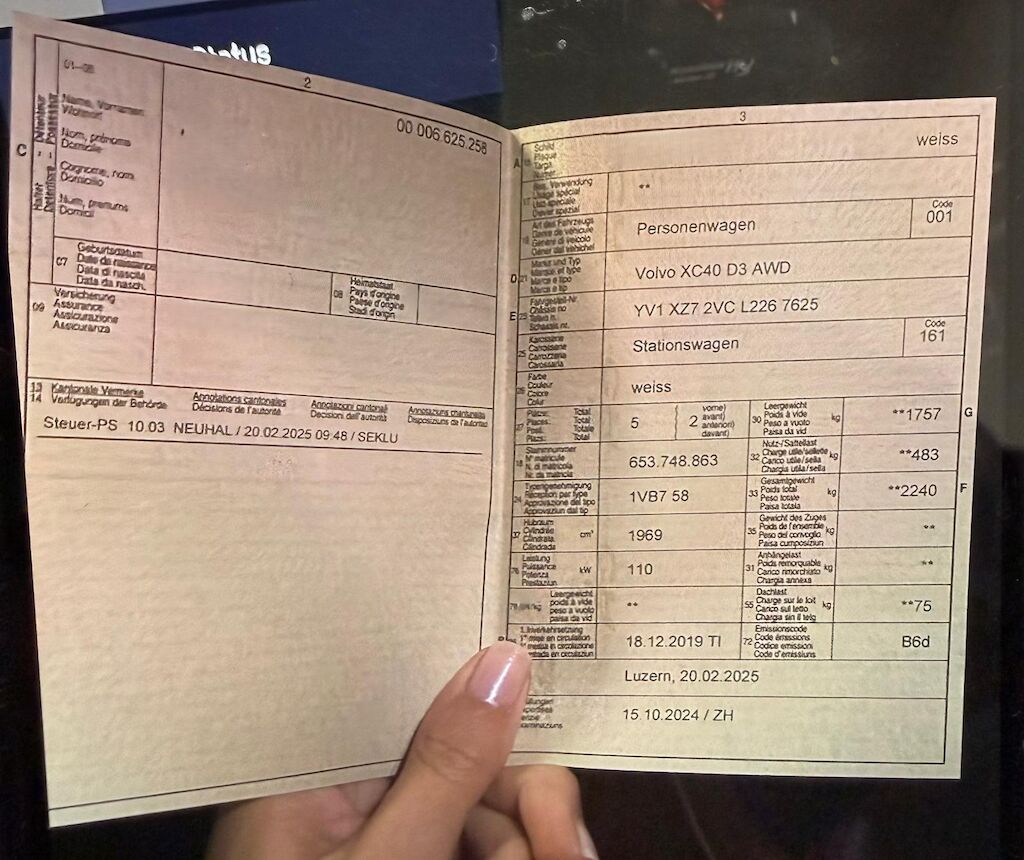 2
00 006.625.258
C
01-06
Name, Vornamen
Wohnort
Nom, prénoms
Domicile
Cognome, nomi
Domicilio
Num, prenums
Domicil
07
Geburtsdatum
Date de naissance
Data di nascita
Data da nasch.
08
Heimatstaat
Pays d'origine
Paese d'origine
Stadi d'origin
09
Versicherung
Assurance
Assicurazione
Assicuranza
13
14
Kantonale Vermerke
Verfügungen der Behörde
Annotations cantonales
Décisions de l'autorité
Annotazioni cantonali
Decisioni dell'autorità
Annotaziuns chantunalas
Disposiziuns da l'autoritad
Steuer-PS 10.03 NEUHAL / 20.02.2025 09:48 / SEKLU
3
A
Schild
Plaque
Targa
weiss
17
Bes. Verwendung
Usage spécial
Uso speciale
Diever spezial
**
Art des Fahrzeugs
Genre de véhicule
Genere di veicolo
Gener dal vehichel
Personenwagen
Code
001
D
21
Marke und Typ
Marque et type
Marca e tipo
Marca e tip
Volvo XC40 D3 AWD
E
23
Fahrgestell-Nr.
Châssis no
Telaio n.
Schassis nr.
YV1 XZ7 2VC L226 7625
25
Karosserie
Carrosserie
Carrozzeria
Carossaria
Stationswagen
Code
161
26
Farbe
Couleur
Colore
Colur
weiss
27
Plätze: Total
Places: Total
Posti: Totale
Plazs: Total
5
2
vorne)
avant)
anteriori)
davant)
30
Leergewicht
Poids à vide
Peso a vuoto
Paisa da vid
kg
**1757
G
18
Stammnummer
N° matricule
N. di matricola
Nr. da matricla
653.748.863
32
Nutz-/Sattellast
Charge utile/sellette
Carico utile/sella
Chargia utila/sella
kg
**483
24
Typengenehmigung
Réception par type
Approvazione del tipo
Approvaziun dal tip
1VB7 58
33
Gesamtgewicht
Poids total
Peso totale
Paisa totala
kg
**2240
F
37
Hubraum
Cylindrée
Cilindrata
Cilindrada
cm³
1969
35
Gewicht des Zuges
Poids de l'ensemble
Peso del convoglio
Paisa cumposiziun
kg
**
76
Leistung
Puissance
Potenza
Prestaziun
kW
110
31
Anhängelast
Poids remorquable
Carico rimorchiato
Chargia annexa
kg
**
Leergewicht
poids à vide
peso a vuoto
paisa da vid
**
55
Dachlast
Charge sur le toit
Carico sul tetto
Chargia sin il tetg
kg
**75
1. Inverkehrsetzung
1re mise en circulation
messa in circolazione
entrada en circulaziun
18.12.2019 TI
72
Emissionscode
Code émissions
Codice emissioni
Code d'emissiuns
B6d
Luzern, 20.02.2025
15.10.2024 / ZH